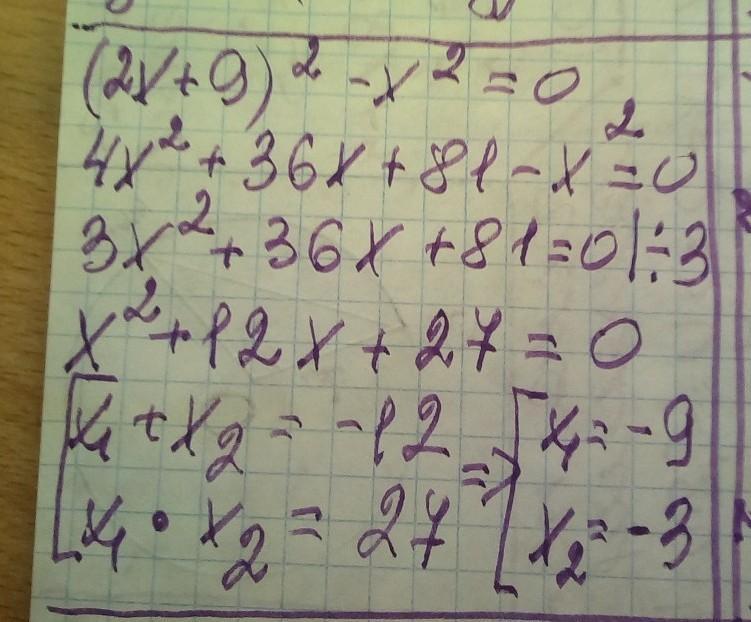 (2x+9)² -x² = 0
4x² + 36x + 81 - x² = 0
3x² + 36x + 81 = 0 | ÷3
x² + 12x + 27 = 0
[ x₁ + x₂ = -12
x₁ · x₂ = 27 => [ x₁ = -9
x₂ = -3